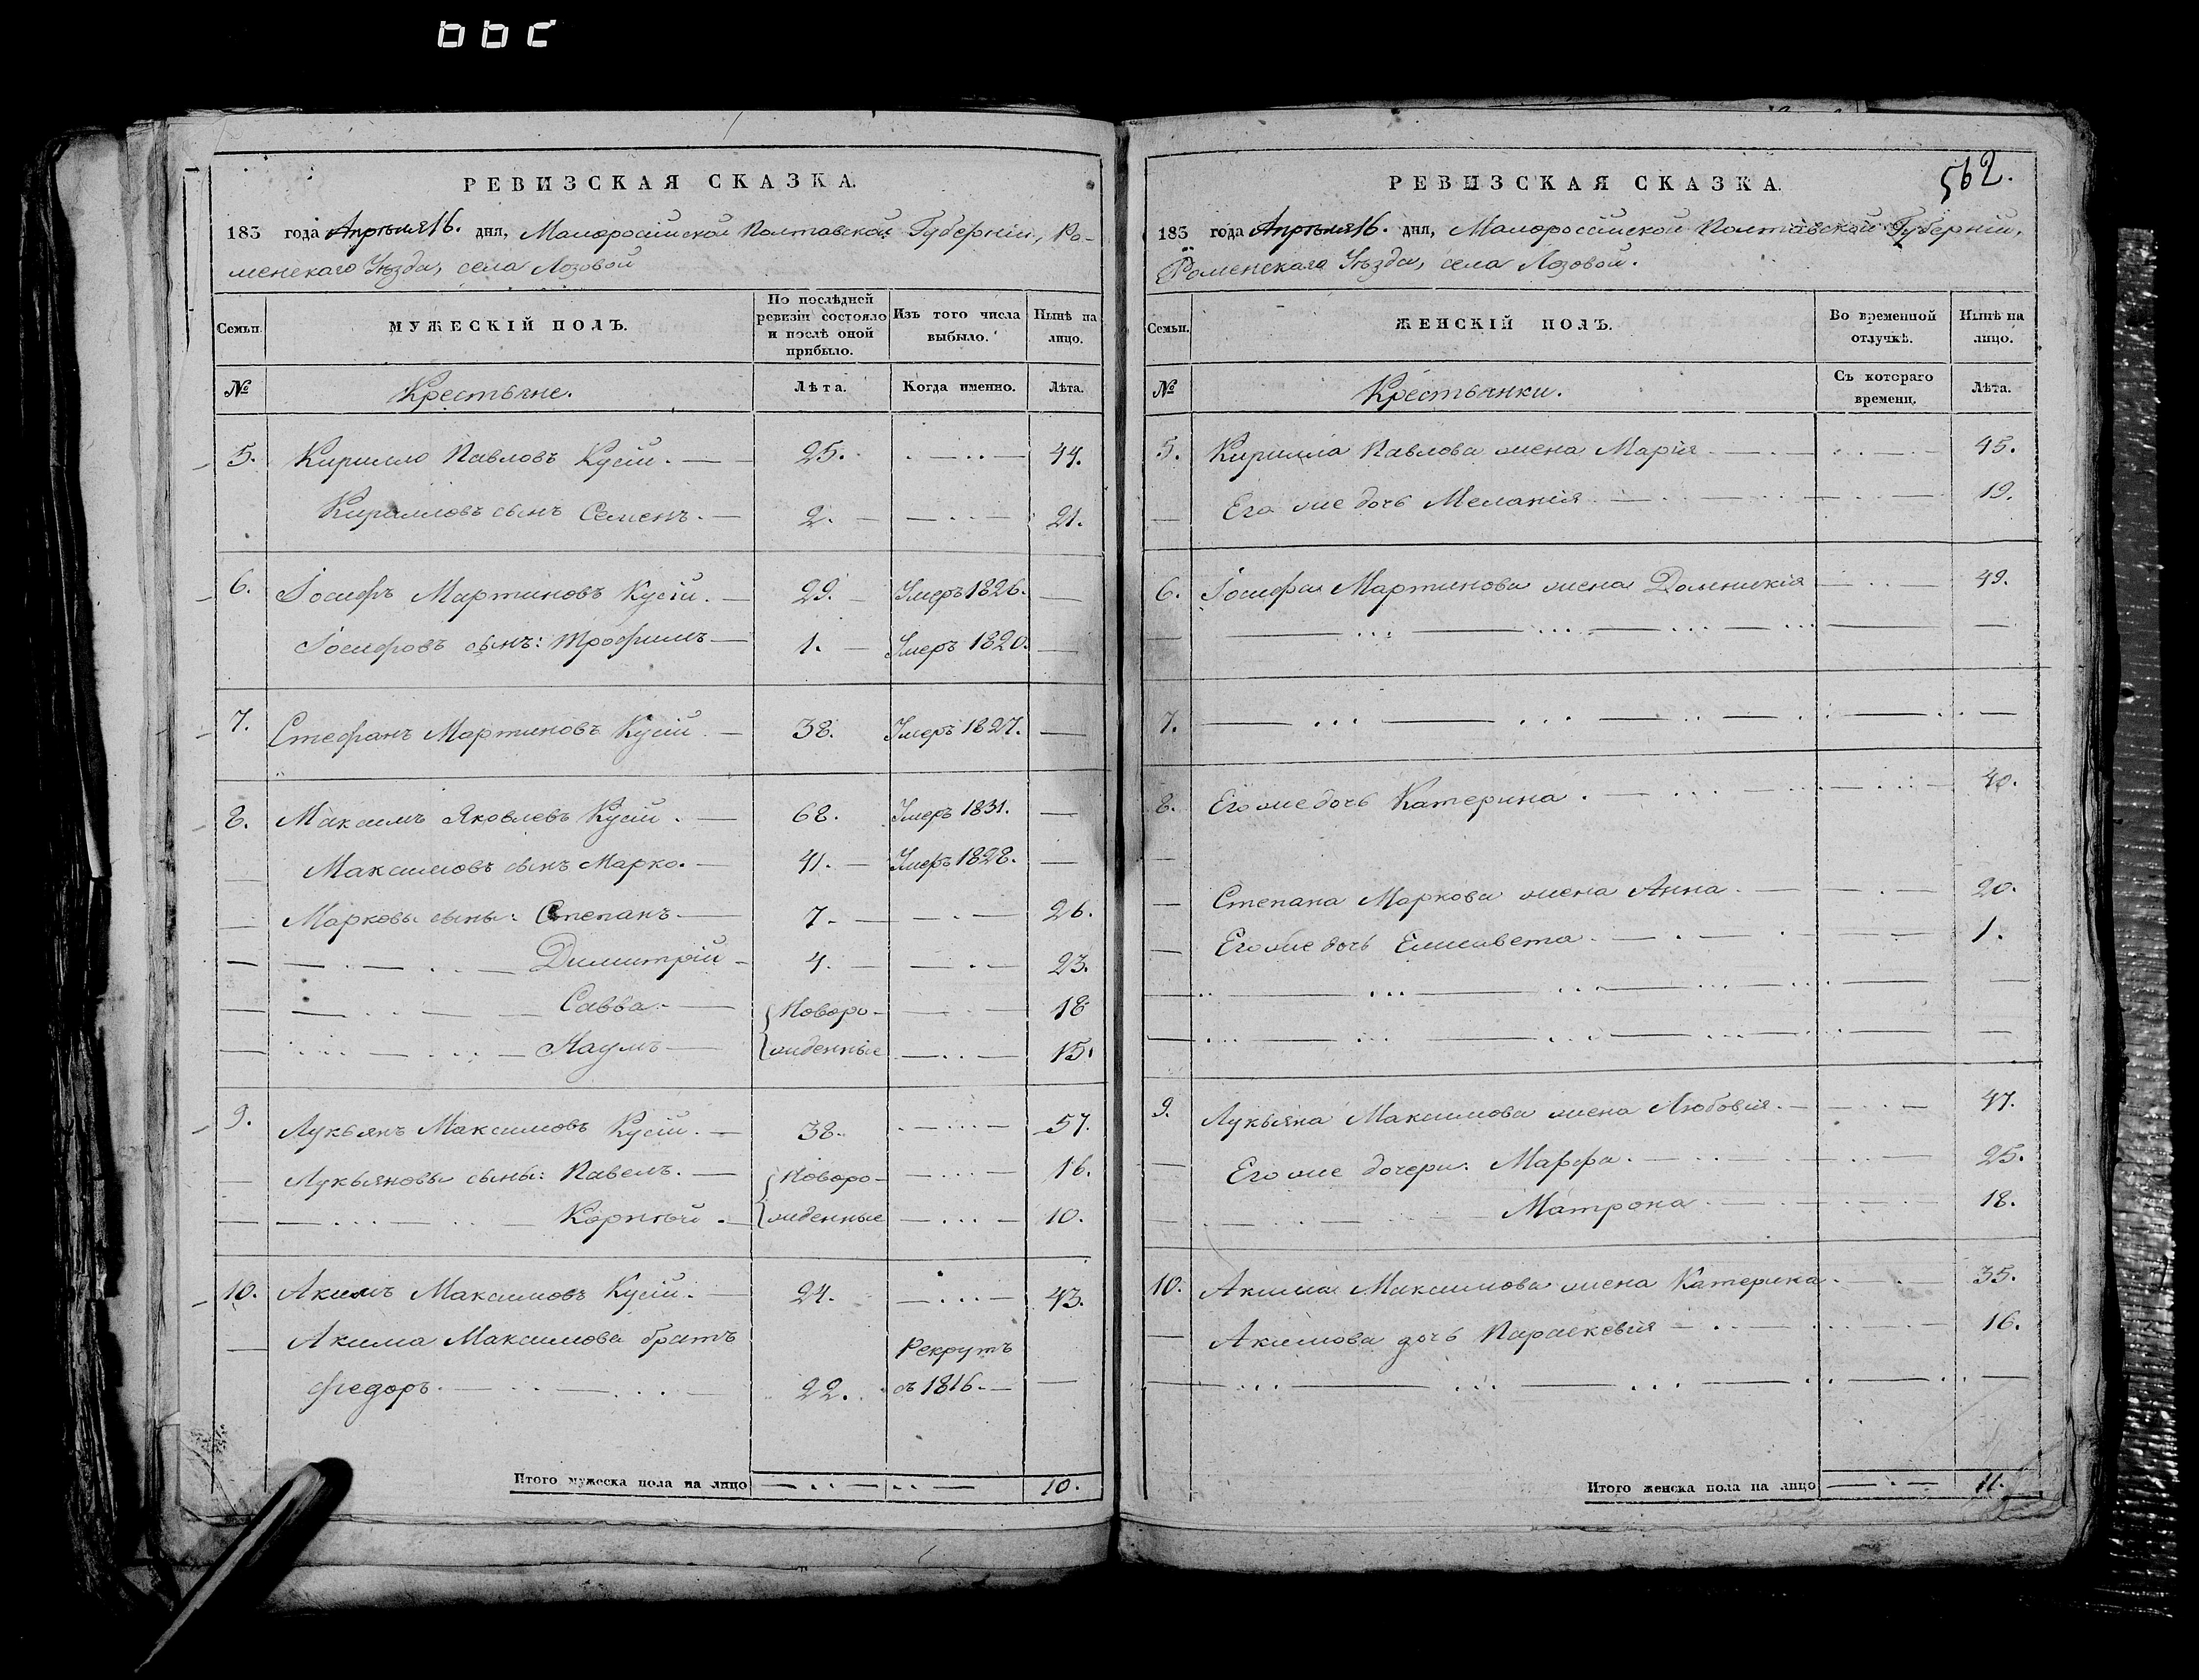 РЕВИЗСКАЯ СКАЗКА.
183 года Апрѣля 16. дня, Малоросійской Полтавской Губерніи, Ро-
менскаго Уѣзда, села Лозовой
Семьи.
МУЖЕСКІЙ ПОЛЪ.
По послѣдней ревизіи состояло и послѣ оной прибыло.
Изъ того числа выбыло.
Нынѣ на лицо.
№ Крестьяне. Лѣта. Когда именно. Лѣта.
5. Кирилло Павловъ Кусій. 25. 44.
Кирилловъ сынъ Семенъ. 2. 21.
6. Іосифъ Мартиновъ Кусій. 29. Умеръ 1826.
Іосифовъ сынъ: Трофимъ 1. Умеръ 1820.
7. Стефанъ Мартиновъ Кусій 38. Умеръ 1827.
8. Максимъ Яковлевъ Кусій. 68. Умеръ 1831.
Максимовъ сынъ Марко. 41. Умеръ 1828.
Марковы сыны: Степанъ 7. 26.
Димитрій 4. 23.
Савва. Новоро- 18
Наумъ жденные 15.
9. Лукьянъ Максимовъ Кусій. 38. 57.
Лукьяновы сыны: Павелъ. Новоро- 16.
Корнѣй. жденные 10.
10. Акимъ Максимовъ Кусій. 24. 43.
Акима Максимова братъ Рекрутъ
Федоръ. 22. съ 1816.
Итого мужеска пола на лицо 10.
562.
РЕВИЗСКАЯ СКАЗКА.
183 года Апрѣля 16. дня, Малоросійской Полтавской Губерніи,
Роменскаго Уѣзда, села Лозовой.
Семьи.
ЖЕНСКІЙ ПОЛЪ.
Во временной отлучкѣ.
Нынѣ на лицо.
№ Крестьянки. Съ котораго времени. Лѣта.
5. Кирилла Павлова жена Марія 45.
Его же дочь Меланія 19.
6. Іосифа Мартинова жена Домникія 49.
7.
8. Его же дочь Катерина. 40.
Степана Маркова жена Анна. 20.
Его же дочь Елисавета. 1.
9. Лукьяна Максимова жена Любовія. 47.
Его же дочери: Марфа. 25.
Матрона 18.
10. Акима Максимова жена Катерина. 35.
Акимова дочь Параскевія 16.
Итого женска пола на лицо 11.